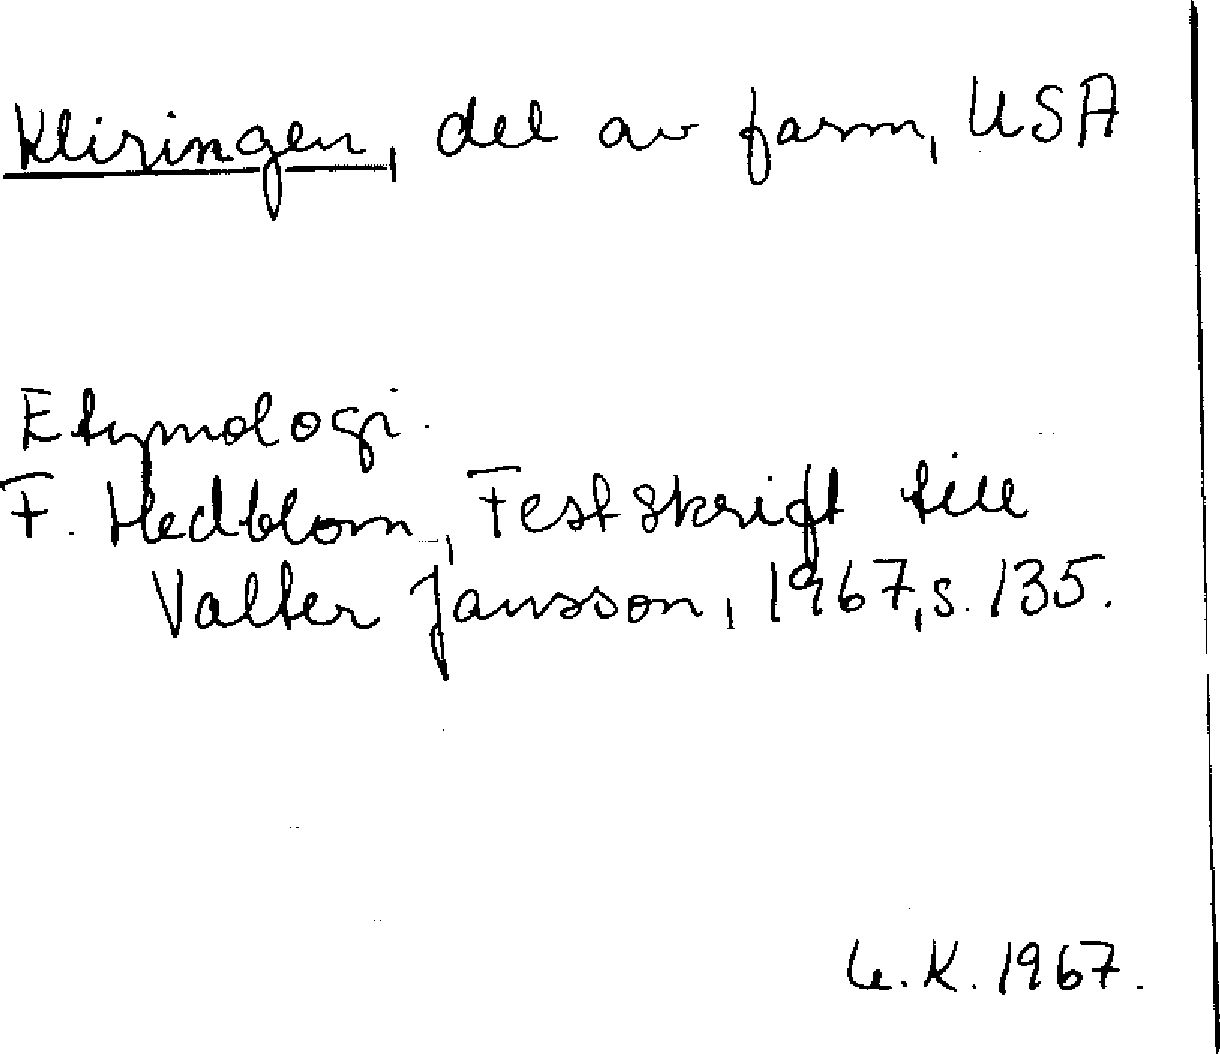 Kliringen, del av farm, USA
Etymologi.
F. Hedblom, Festskrift till
Valter Jansson, 1967, s. 135.
K. 1967.